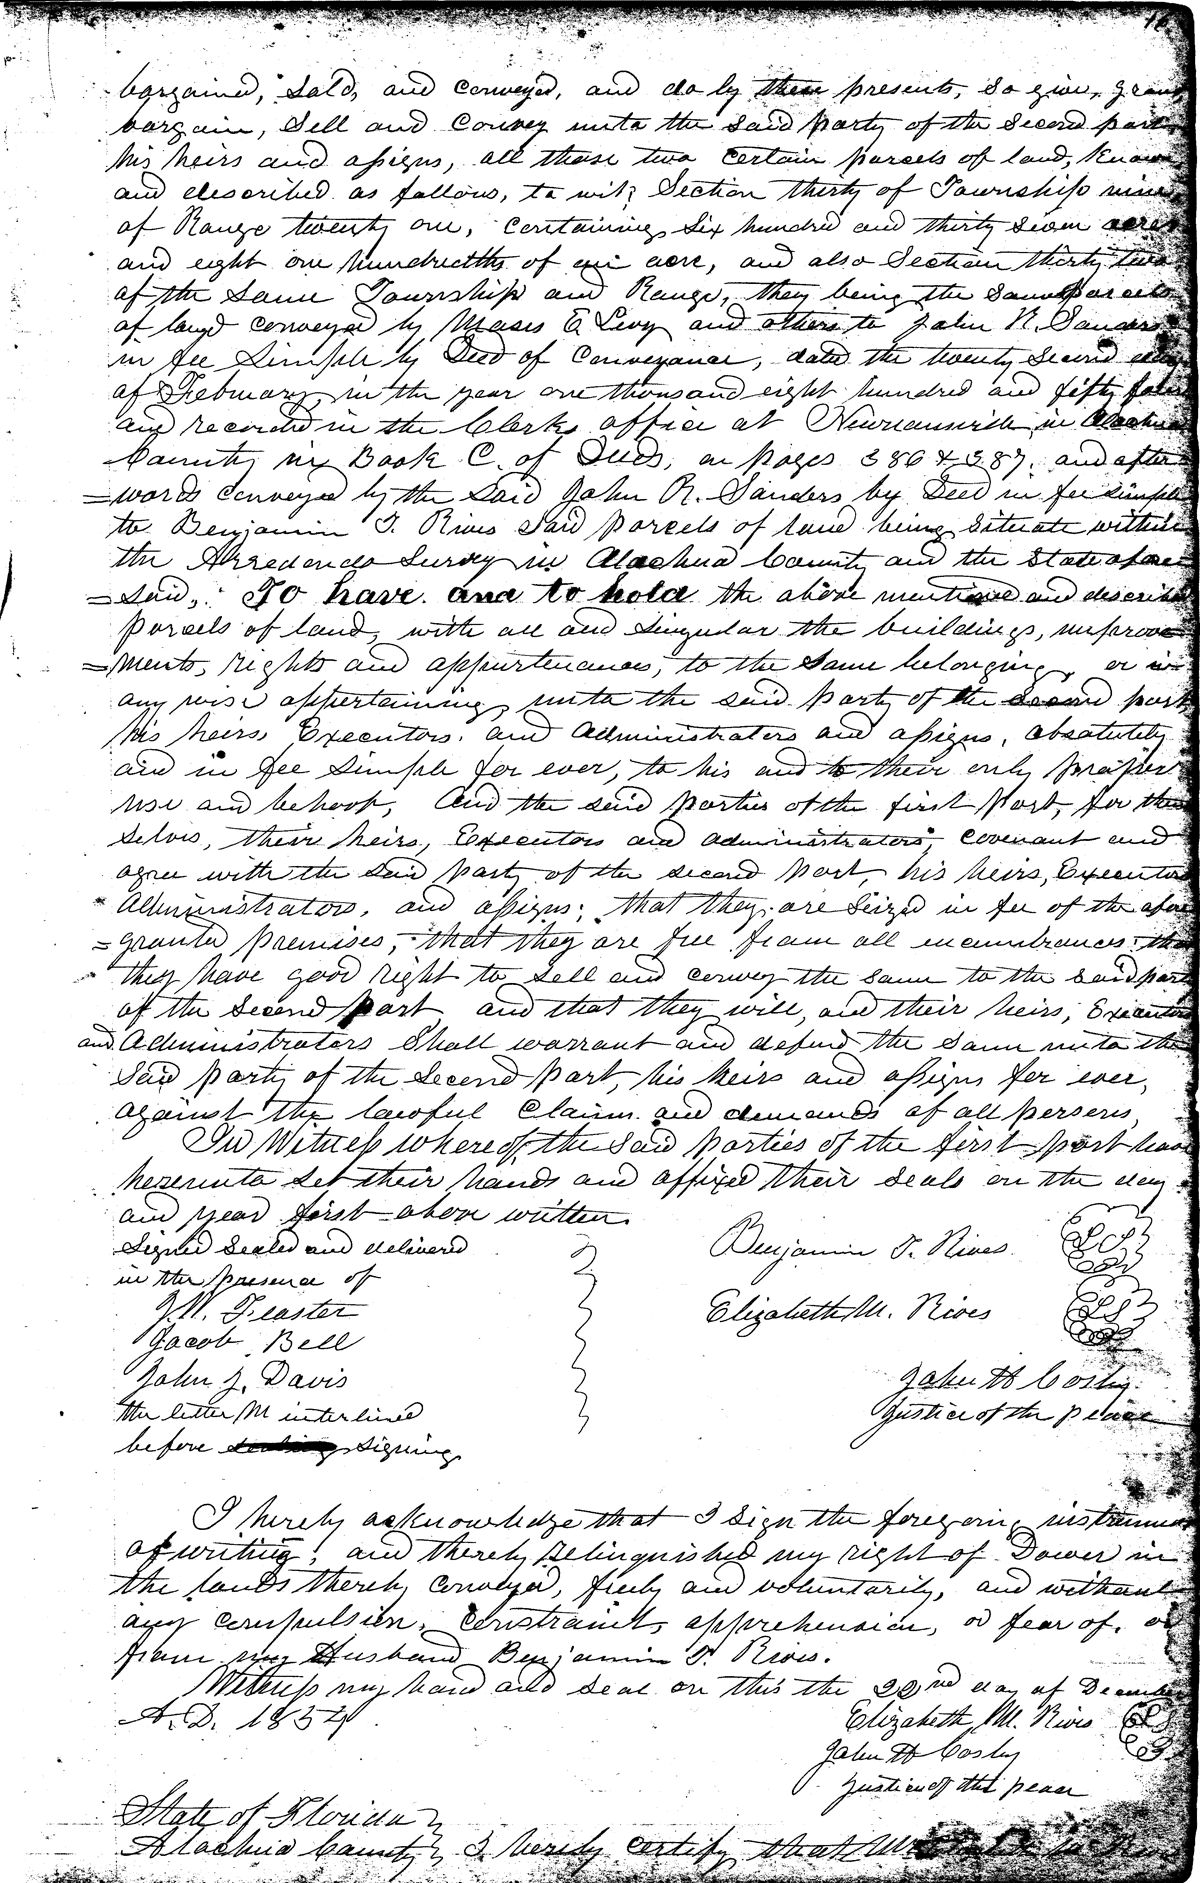 bargained, Sold, and conveyed, and do by these presents, do give, grant
bargain, Sell and Convey unto the said party of the Second part
his heirs and assigns, all those two certain parcels of land, Known
and described as follows, to wit; Section thirty of Township nine
of Range twenty one, Containing Six hundred and thirty Seven acres
and eight one hundredths of an acre, and also Section thirty two
of the Same Township and Range, they being the Same parcels
of land conveyed by Moses E Levy and others to John R. Sanders
in fee Simple by Deed of Conveyance, date the twenty Second day
of February in the year one thousand eight hundred and fifty four
and recorded in the Clerks office at Newnansville in Alachua
County in Book C. of Deeds, on pages 386 & 387. and after
=words conveyed by the Said John R. Sanders by Deed in fee simple
to Benjamin T. Rives Said parcels of land being Situate within
the Arredondo Survey in Alachua County and the State afore
=Said, To have and to hold the above mentioned and described
parcels of land, with all and Singular the buildings, improve
=ments, rights and appurtenances, to the Same belonging, or in
any wise appertaining, unto the said party of the Second part
his heirs Executors. and Administrators and assigns, absolutely
and in fee Simple for ever, to his and to their only proper
use and behoof, And the said parties of the first Part, for them
Selves, their heirs, Executors and administrators, Covenant and
agree with the Said party of the second Part, his heirs, Executors
Administrators, and assigns; that they are Seized in fee of the afore
=granted premises, that they are free from all incumbrances. that
they have good right to Sell and convey the same to the Said part
of the Second Part and that they will, and their heirs, Executors
and Administrators Shall warrant and defend the Same unto the
Said party of the Second Part, his heirs and assigns for ever,
against the lawful Claims and demands of all persons,
In Witness whereof, the Said parties of the first part have
hereunto Set their hands and affixed their Seals on the day
and year first above written.
Signed Sealed and delivered
in the presence of
J. W. Feaster
Jacob Bell
John J. Davis
the letter M interlined
before signing
Benjamin T. Rives
Elizabeth M. Rives
John H Cosby
Justice of the peace
I hereby acknowledge that I Sign the foregoing instrument
of writing, and thereby relinquished my right of Dower in
the lands thereby conveyed, freely and voluntarily, and without
any compulsion, Constraint, apprehension, or fear of, or
from my Husband Benjamin T. Rives.
Witness my hand and Seal on this the 22nd day of December
A. D. 1854
Elizabeth M. Rives
John H Cosby
Justice of the peace
State of Florida
Alachua County I hereby certify that